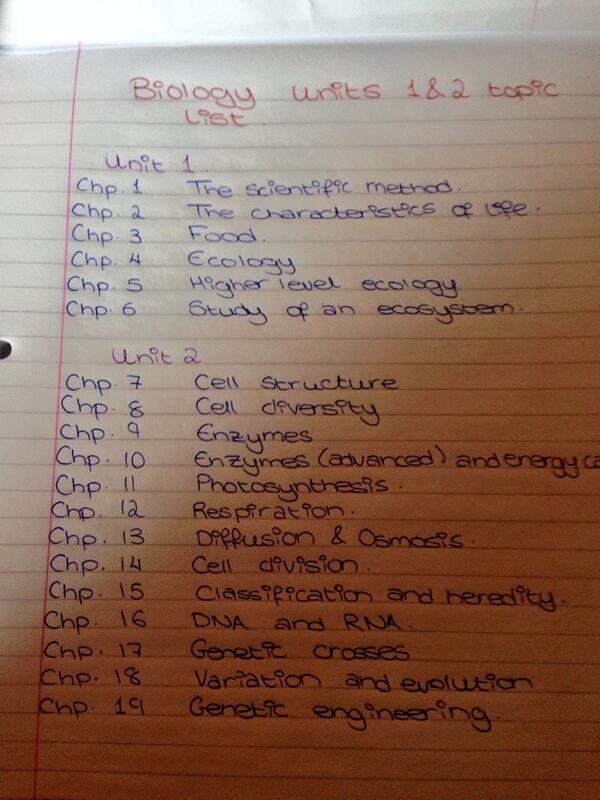 Biology Units 1 & 2 topic
List
Unit 1
Chp. 1 The scientific method.
Chp. 2 The characteristics of life.
Chp. 3 Food.
Chp. 4 Ecology
Chp. 5 Higher level ecology
Chp. 6 Study of an ecosystem.
Unit 2
Chp. 7 Cell structure
Chp. 8 Cell diversity
Chp. 9 Enzymes
Chp. 10 Enzymes (advanced) and energy ca
Chp. 11 Photosynthesis.
Chp. 12 Respiration.
Chp. 13 Diffusion & Osmosis.
Chp. 14 Cell division.
Chp. 15 Classification and heredity.
Chp. 16 DNA and RNA.
Chp. 17 Genetic crosses
Chp. 18 Variation and evolution
Chp. 19 Genetic engineering.